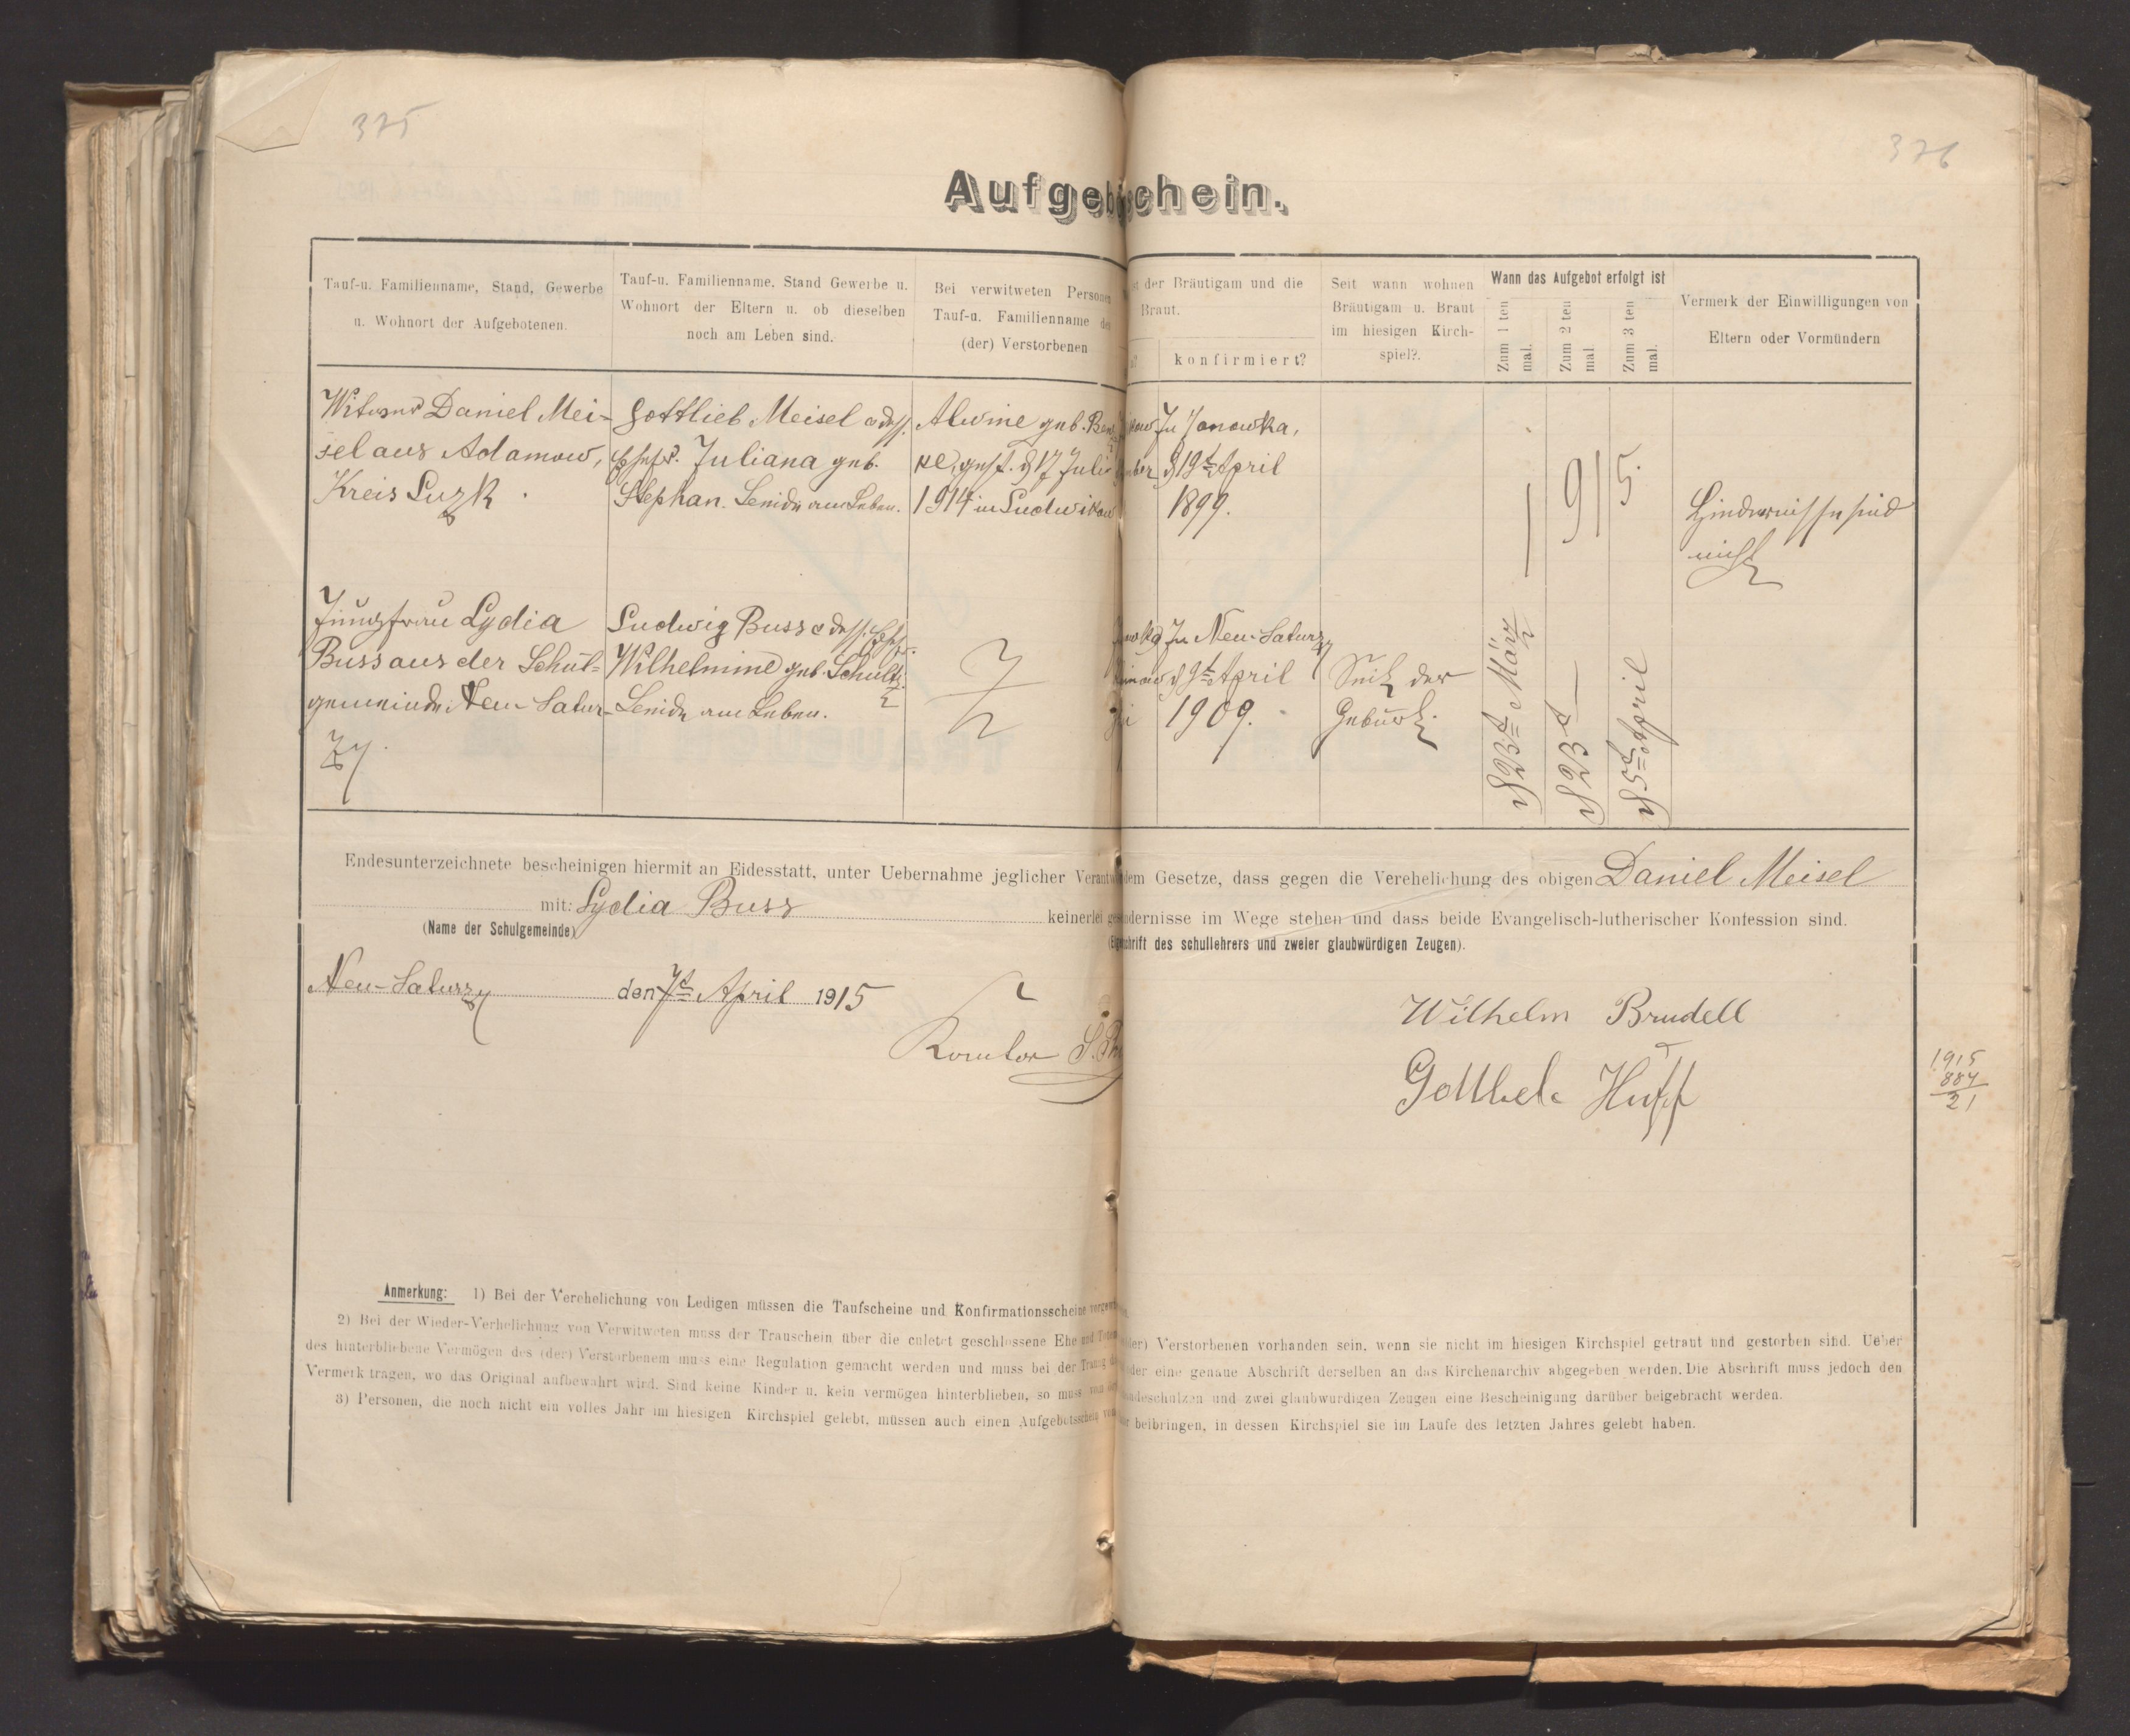 375
376
Aufgebotschein.
Tauf-u. Familienname, Stand, Gewerbe
u. Wohnort der Aufgebotenen.
Tauf-u. Familienname, Stand Gewerbe u.
Wohnort der Eltern u. ob dieselben
noch am Leben sind.
Bei verwitweten Personen
Tauf-u. Familienname des
(der) Verstorbenen
der Bräutigam und die
Braut.
konfirmiert?
Seit wann wohnen
Bräutigam u. Braut
im hiesigen Kirch-
spiel?.
Wann das Aufgebot erfolgt ist
Zum 1 ten
mal.
Zum 2 ten
mal
Zum 3 ten
mal.
Vermerk der Einwilligungen von
Eltern oder Vormündern
Witwer Daniel Mei-
sel aus Adamow,
Kreis Luzk.
Gottlieb Meisel u dess.
Ehefr. Juliana geb.
Stephan. Beide am Leben.
Alwine geb.
ke, gest. d 17 Juli
1914 in Ludwikow
In Janowka,
d 19t April
1899.
1915.
Hindernisse sind
nicht
Jungfrau Lydia
Buss aus der Schul-
gemeinde Neu-Satur-
zy.
Ludwig Buss u dess. Ehefr.
Wilhelmine geb. Schultz.
Beide am Leben.
In Neu-Saturzy
d 9t April
1909.
Seit der
Geburt.
d 23t März
d 23t —
d 5t April
Endesunterzeichnete bescheinigen hiermit an Eidesstatt, unter Uebernahme jeglicher dem Gesetze, dass gegen die Verehelichung des obigen Daniel Meisel
mit: Lydia Buss keinerlei dernisse im Wege stehen und dass beide Evangelisch-lutherischer Konfession sind.
(Name der Schulgemeinde)
schrift des schullehrers und zweier glaubwürdigen Zeugen).
Neu-Saturzy den 7t April 1915
Kantor S.
Wilhelm Brudell
Gottlieb Huff
1915
884
21
Anmerkung: 1) Bei der Verehelichung von Ledigen müssen die Taufscheine und Konfirmationsscheine
2) Bei der Wieder-Verhelichung von Verwitweten muss der Trauschein über die culetet geschlossene Ehe und (der) Verstorbenen vorhanden sein, wenn sie nicht im hiesigen Kirchspiel getraut und gestorben sind. Ueber
des hinterbliebene Vermögen des (der) Verstorbenem muss eine Regulation gemacht werden und muss bei der Trauung eine genaue Abschrift derselben an das Kirchenarchiv abgegeben werden. Die Abschrift muss jedoch den
Vermerk tragen, wo das Original aufbewahrt wird. Sind keine Kinder u. kein vermögen hinterblieben, so muss und zwei glaubwürdigen Zeugen eine Bescheinigung darüber beigebracht werden.
3) Personen, die noch nicht ein volles Jahr im hiesigen Kirchspiel gelebt, müssen auch einen Aufgebotsschein beibringen, in dessen Kirchspiel sie im Laufe des letzten Jahres gelebt haben.